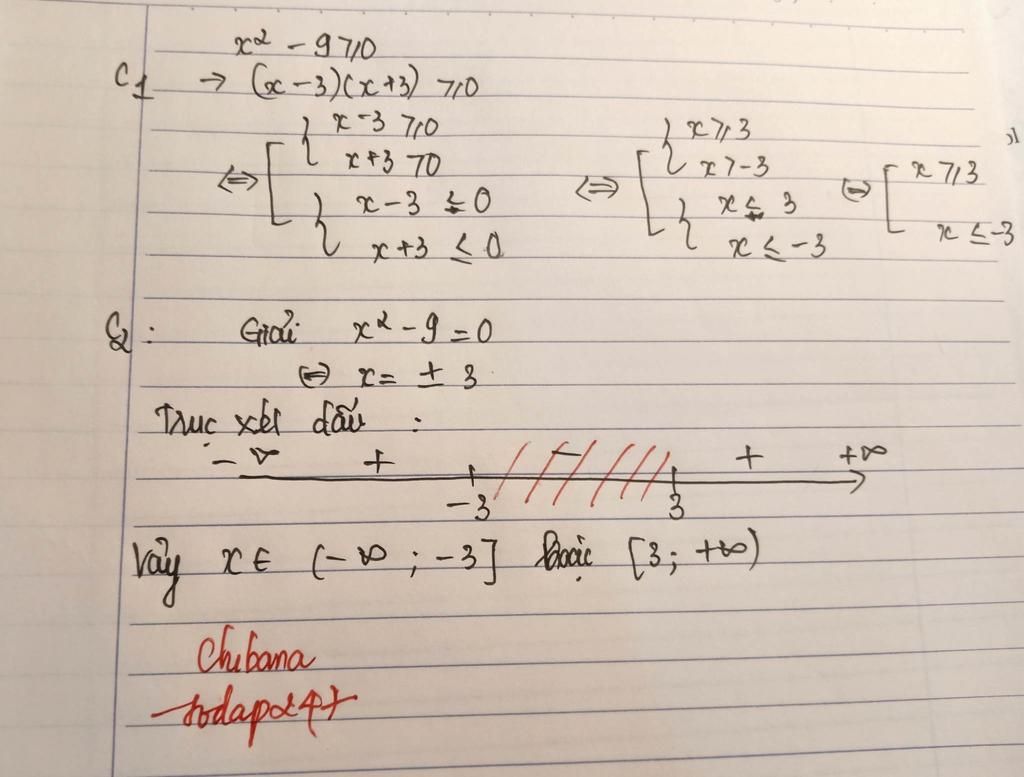 x² - 9 ⩾ 0
C1 → (x - 3)(x + 3) ⩾ 0
⇔ [ { x - 3 ⩾ 0 ⇔ [ { x ⩾ 3 ⇔ [ x ⩾ 3
x + 3 > 0 x > -3
{ x - 3 ≤ 0 { x ≤ 3 x ≤ -3
x + 3 ≤ 0 x ≤ -3
C2 : Giải x² - 9 = 0
⇔ x = ± 3
Trục xét dấu :
- ∞ + - + +∞
-3 3
Vậy x ∈ (- ∞ ; -3] hoặc [3 ; +∞)
Chibana
hodap247